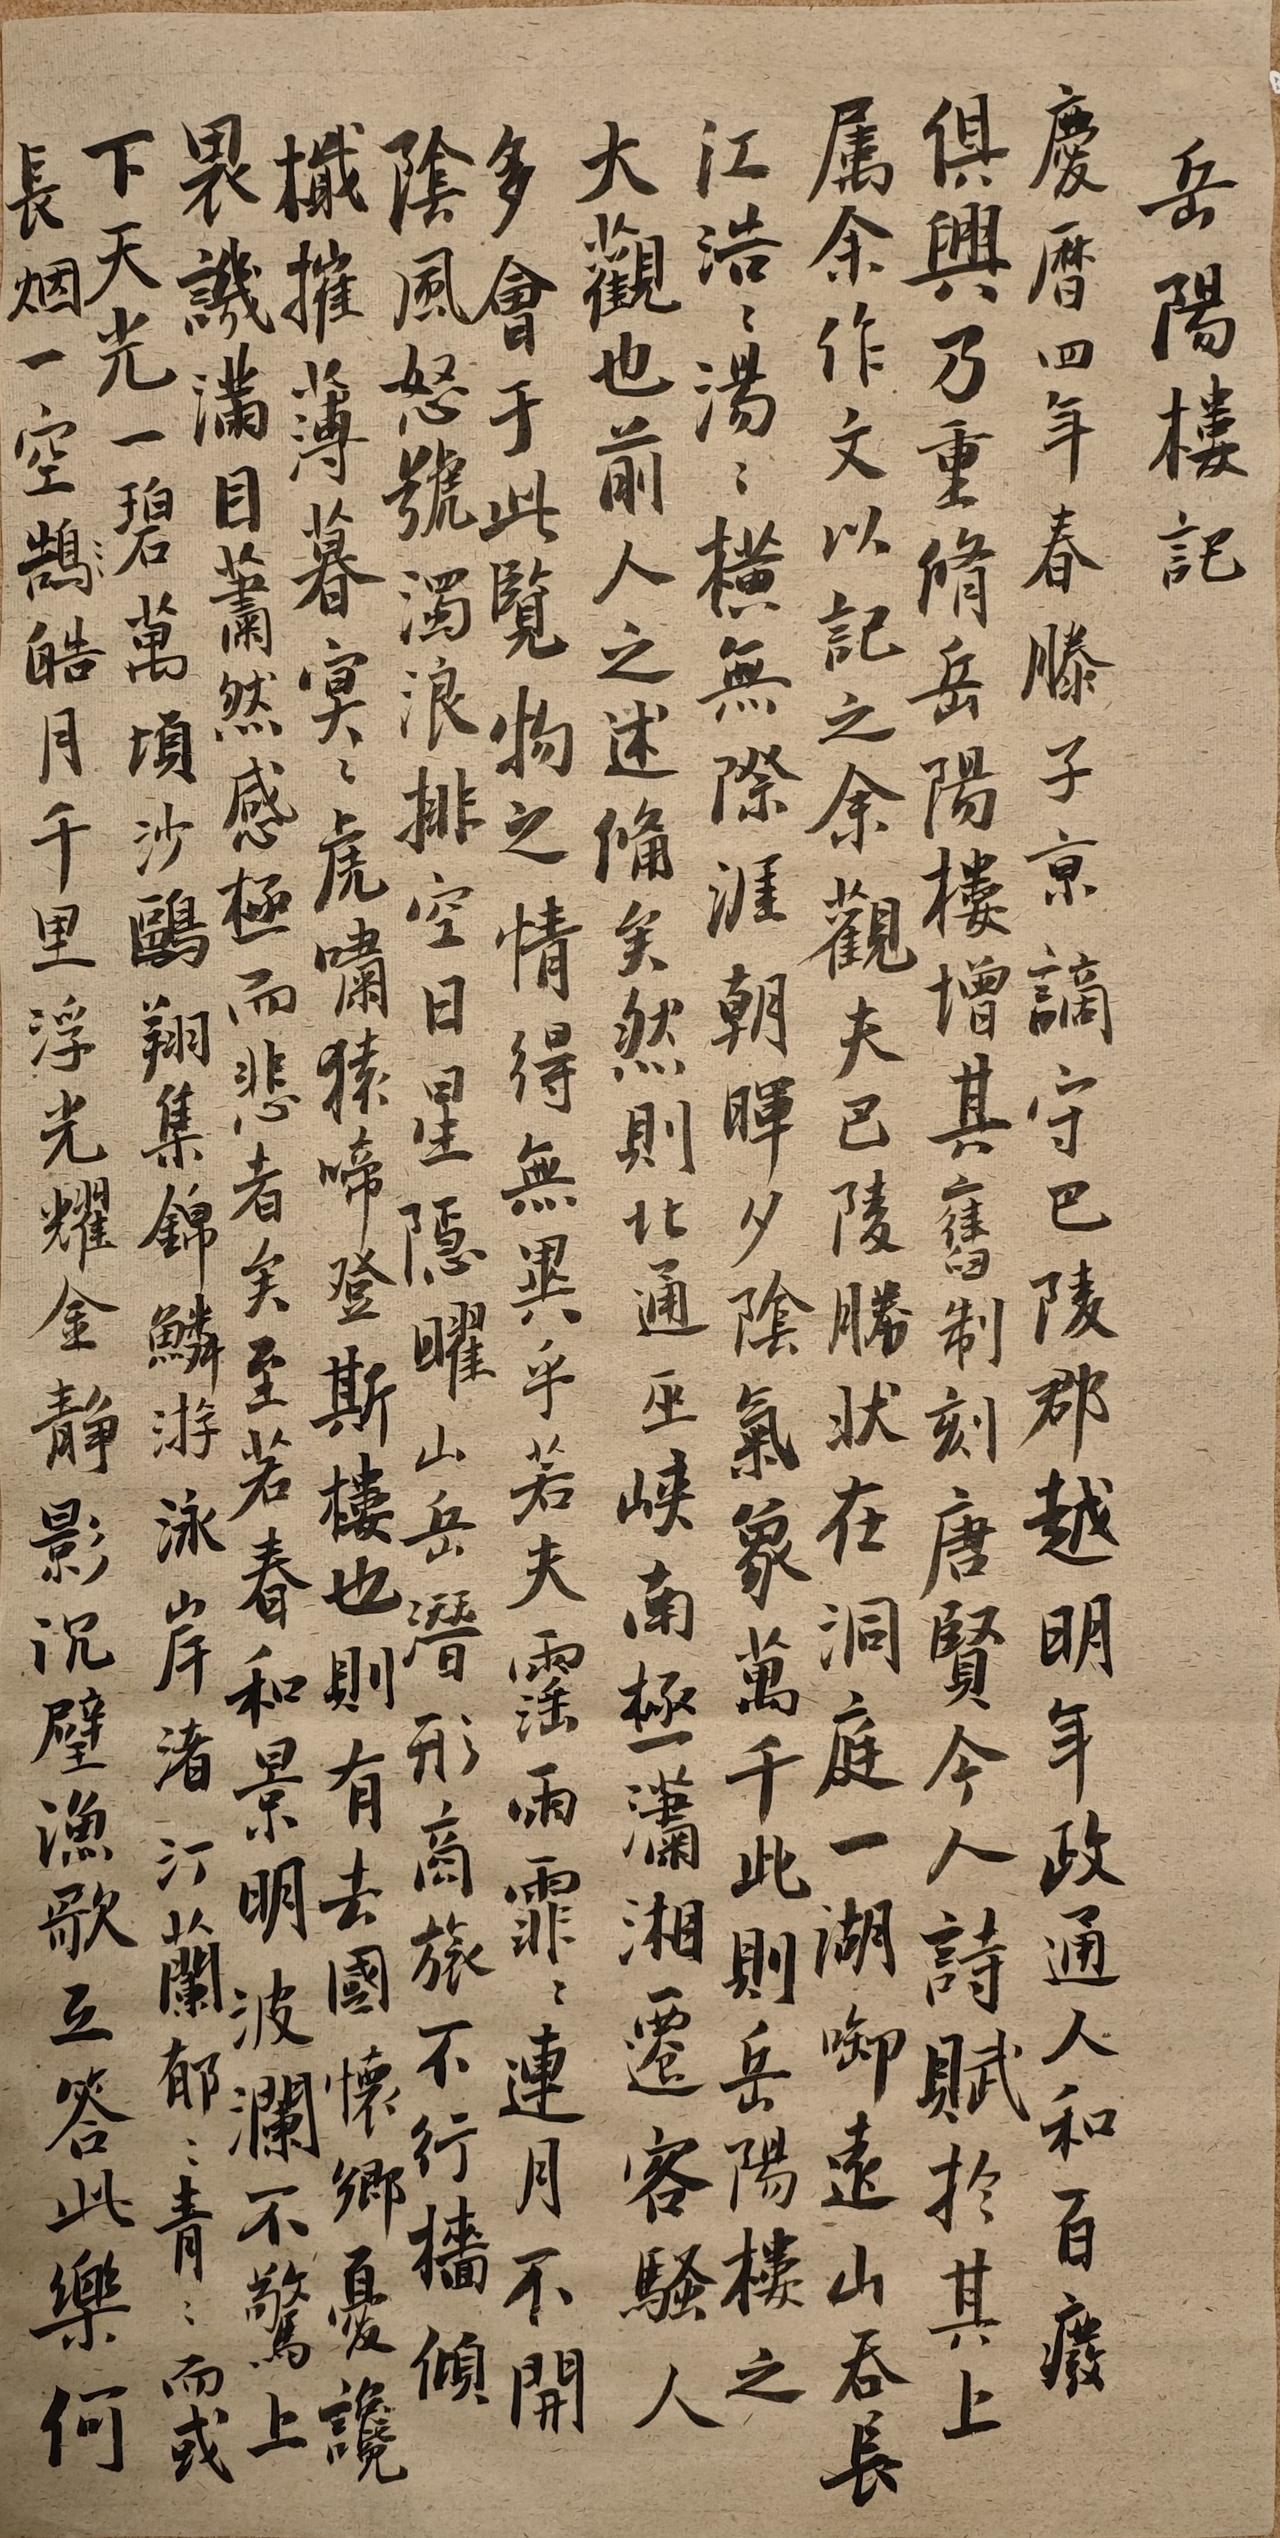 岳陽樓記
慶曆四年春滕子京謫守巴陵郡越明年政通人和百廢
俱興乃重脩岳陽樓增其舊制刻唐賢今人詩賦於其上
属余作文以記之余觀夫巴陵勝状在洞庭一湖啣遠山吞長
江浩〻湯〻橫無際涯朝暉夕陰氣象萬千此則岳陽樓之
大觀也前人之述俻矣然則北通巫峽南極瀟湘遷客騷人
多會于此覽物之情得無異乎若夫霪雨霏〻連月不開
陰風怒號濁浪排空日星隱曜山岳潛形商旅不行檣傾
檝摧薄暮冥〻虎嘯猿啼登斯樓也則有去國懷鄉憂讒
畏譏滿目蕭然感極而悲者矣至若春和景明波瀾不驚上
下天光一碧萬頃沙鷗翔集錦鱗游泳岸渚汀蘭郁〻青〻而或
長烟一空鵠皓月千里浮光耀金靜影沉璧漁歌互答此樂何